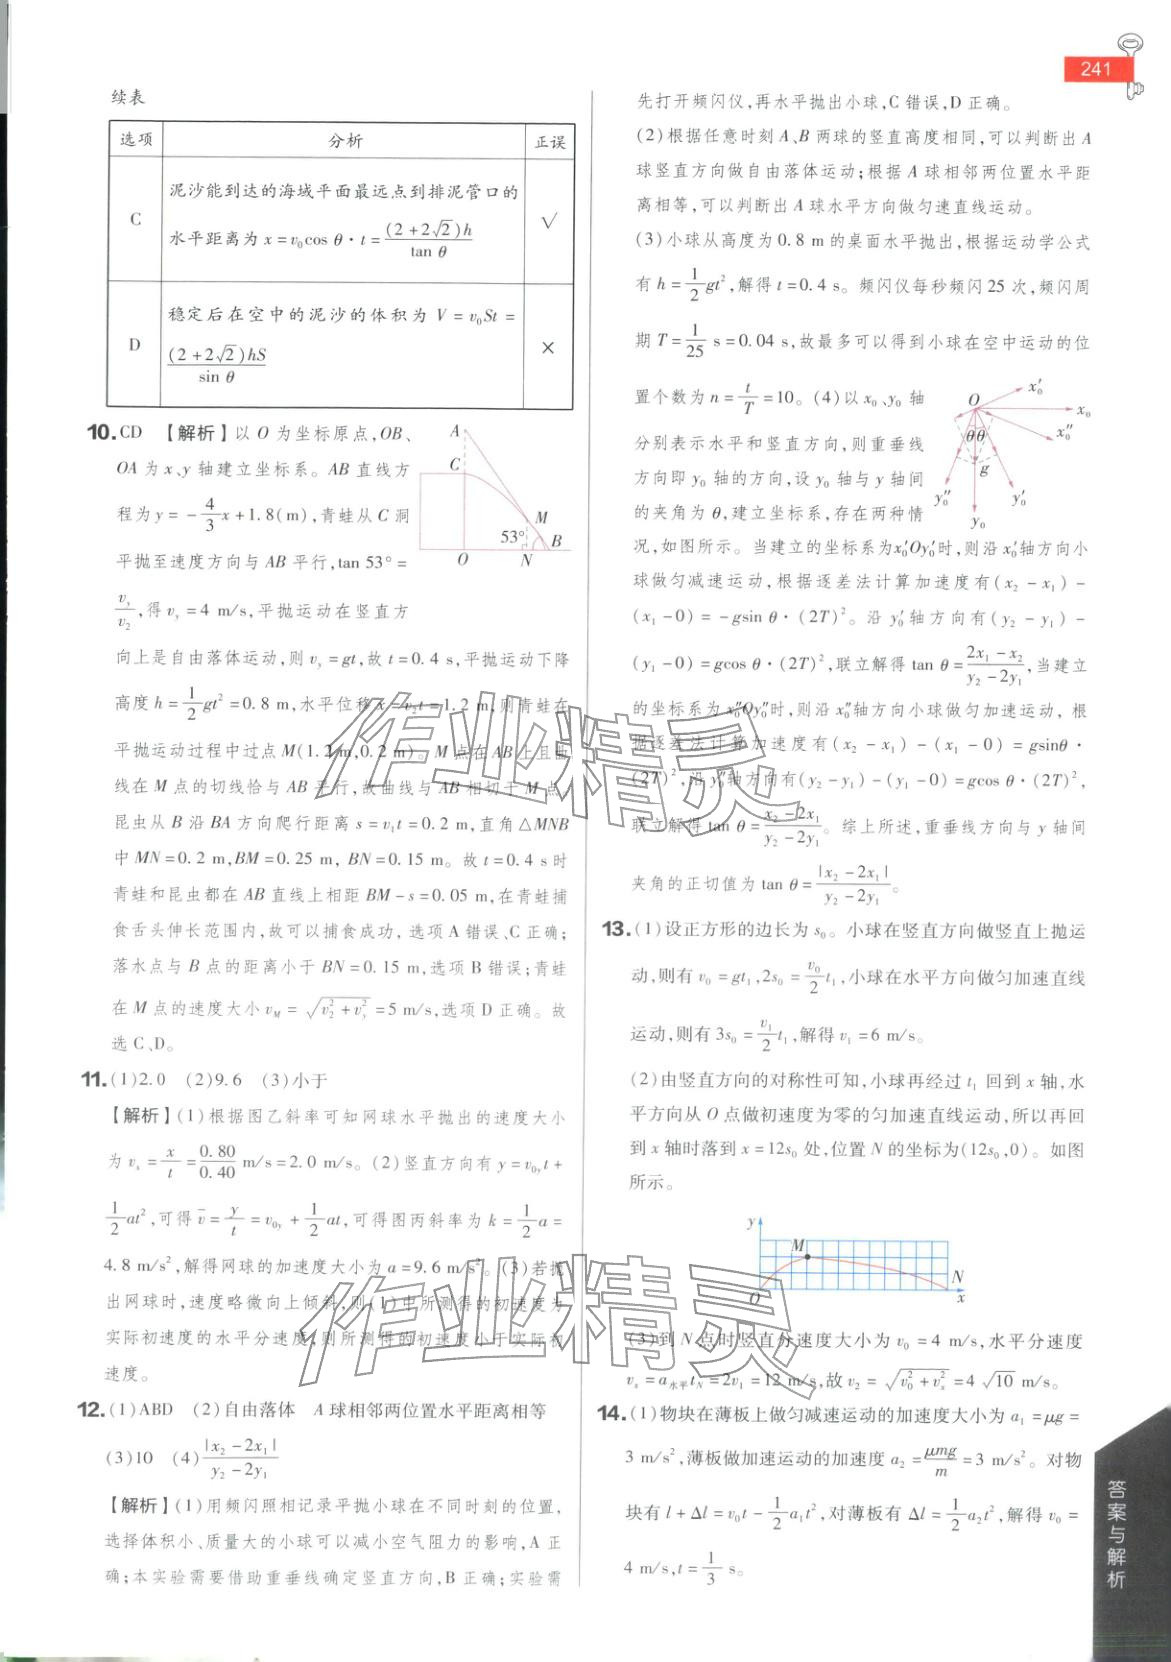 241
续表
选项 分析 正误
C 泥沙能到达的海域平面最远点到排泥管口的
水平距离为 x=v₀cos θ·t=(2+2√2)h/tan θ √
D 稳定后在空中的泥沙的体积为 V=v₀St=
(2+2√2)hS/sin θ ×
10.CD 【解析】以 O 为坐标原点,OB、
OA 为 x、y 轴建立坐标系。AB 直线方
程为 y=-4/3x+1.8(m),青蛙从 C 洞
平抛至速度方向与 AB 平行,tan 53°=
vᵧ/v₂,得 vᵧ=4 m/s,平抛运动在竖直方
A
C
M
53°
B
O
N
向上是自由落体运动,则 vᵧ=gt,故 t=0.4 s,平抛运动下降
高度 h=1/2gt²=0.8 m,水平位移 x=v₂t=1.2 m,则青蛙在
平抛运动过程中过点 M(1.2 m,0.2 m)。M 点在 AB 上且曲
线在 M 点的切线恰与 AB 平行,故曲线与 AB 相切于 M 点,
昆虫从 B 沿 BA 方向爬行距离 s=v₁t=0.2 m,直角△MNB
中 MN=0.2 m,BM=0.25 m, BN=0.15 m。故 t=0.4 s时
青蛙和昆虫都在 AB 直线上相距 BM-s=0.05 m,在青蛙捕
食舌头伸长范围内,故可以捕食成功, 选项 A 错误、C 正确;
落水点与 B 点的距离小于 BN=0.15 m,选项 B 错误;青蛙
在 M 点的速度大小 v_M=√(v₂²+vᵧ²)=5 m/s,选项 D 正确。故
选 C、D。
11.(1)2.0 (2)9.6 (3)小于
【解析】(1)根据图乙斜率可知网球水平抛出的速度大小
为 vₓ=x/t=0.80/0.40 m/s=2.0 m/s。(2)竖直方向有 y=v₀ᵧt+
1/2at²,可得 v̄=y/t=v₀ᵧ+1/2at,可得图丙斜率为 k=1/2a=
4.8 m/s²,解得网球的加速度大小为 a=9.6 m/s²。(3)若抛
出网球时,速度略微向上倾斜,则(1)中所测得的初速度为
实际初速度的水平分速度,则所测得的初速度小于实际初
速度。
12.(1)ABD (2)自由落体 A 球相邻两位置水平距离相等
(3)10 (4)|x₂-2x₁|/(y₂-2y₁)
【解析】(1)用频闪照相记录平抛小球在不同时刻的位置,
选择体积小、质量大的小球可以减小空气阻力的影响,A 正
确;本实验需要借助重垂线确定竖直方向,B 正确;实验需
先打开频闪仪,再水平抛出小球,C 错误,D 正确。
(2)根据任意时刻 A、B 两球的竖直高度相同,可以判断出 A
球竖直方向做自由落体运动;根据 A 球相邻两位置水平距
离相等,可以判断出 A 球水平方向做匀速直线运动。
(3)小球从高度为 0.8 m 的桌面水平抛出,根据运动学公式
有 h=1/2gt²,解得 t=0.4 s。频闪仪每秒频闪 25 次,频闪周
期 T=1/25 s=0.04 s,故最多可以得到小球在空中运动的位
置个数为 n=t/T=10。(4)以 x₀、y₀ 轴
分别表示水平和竖直方向,则重垂线
方向即 y₀ 轴的方向,设 y₀ 轴与 y 轴间
的夹角为 θ,建立坐标系,存在两种情
况,如图所示。当建立的坐标系为x₀′Oy₀′时,则沿 x₀′轴方向小
O
x₀′
x₀
x₀″
θθ
g
y₀″
y₀′
y₀
球做匀减速运动,根据逐差法计算加速度有(x₂-x₁)-
(x₁-0)=-gsin θ·(2T)²。沿 y₀′轴方向有(y₂-y₁)-
(y₁-0)=gcos θ·(2T)²,联立解得 tan θ=(2x₁-x₂)/(y₂-2y₁),当建立
的坐标系为 x₀″Oy₀″时,则沿 x₀″轴方向小球做匀加速运动, 根
据逐差法计算加速度有(x₂-x₁)-(x₁-0)=gsinθ·
(2T)²,沿 y₀″轴方向有(y₂-y₁)-(y₁-0)=gcos θ·(2T)²,
联立解得 tan θ=(x₂-2x₁)/(y₂-2y₁)。综上所述,重垂线方向与 y 轴间
夹角的正切值为 tan θ=|x₂-2x₁|/(y₂-2y₁)。
13.(1)设正方形的边长为 s₀。小球在竖直方向做竖直上抛运
动,则有 v₀=gt₁,2s₀=v₀/2t₁,小球在水平方向做匀加速直线
运动,则有 3s₀=v₁/2t₁,解得 v₁=6 m/s。
(2)由竖直方向的对称性可知,小球再经过 t₁ 回到 x 轴,水
平方向从 O 点做初速度为零的匀加速直线运动,所以再回
到 x 轴时落到 x=12s₀ 处,位置 N 的坐标为(12s₀,0)。如图
所示。
y
M
N
O
x
(3)到 N 点时竖直分速度大小为 v₀=4 m/s,水平分速度
vₓ=a水平t_N=2v₁=12 m/s,故 v₂=√(v₀²+vₓ²)=4√10 m/s。
14.(1)物块在薄板上做匀减速运动的加速度大小为 a₁=μg=
3 m/s²,薄板做加速运动的加速度 a₂=μmg/m=3 m/s²。对物
块有 l+Δl=v₀t-1/2a₁t²,对薄板有 Δl=1/2a₂t²,解得 v₀=
4 m/s,t=1/3 s。
答案与解析
作业精灵
作业精灵